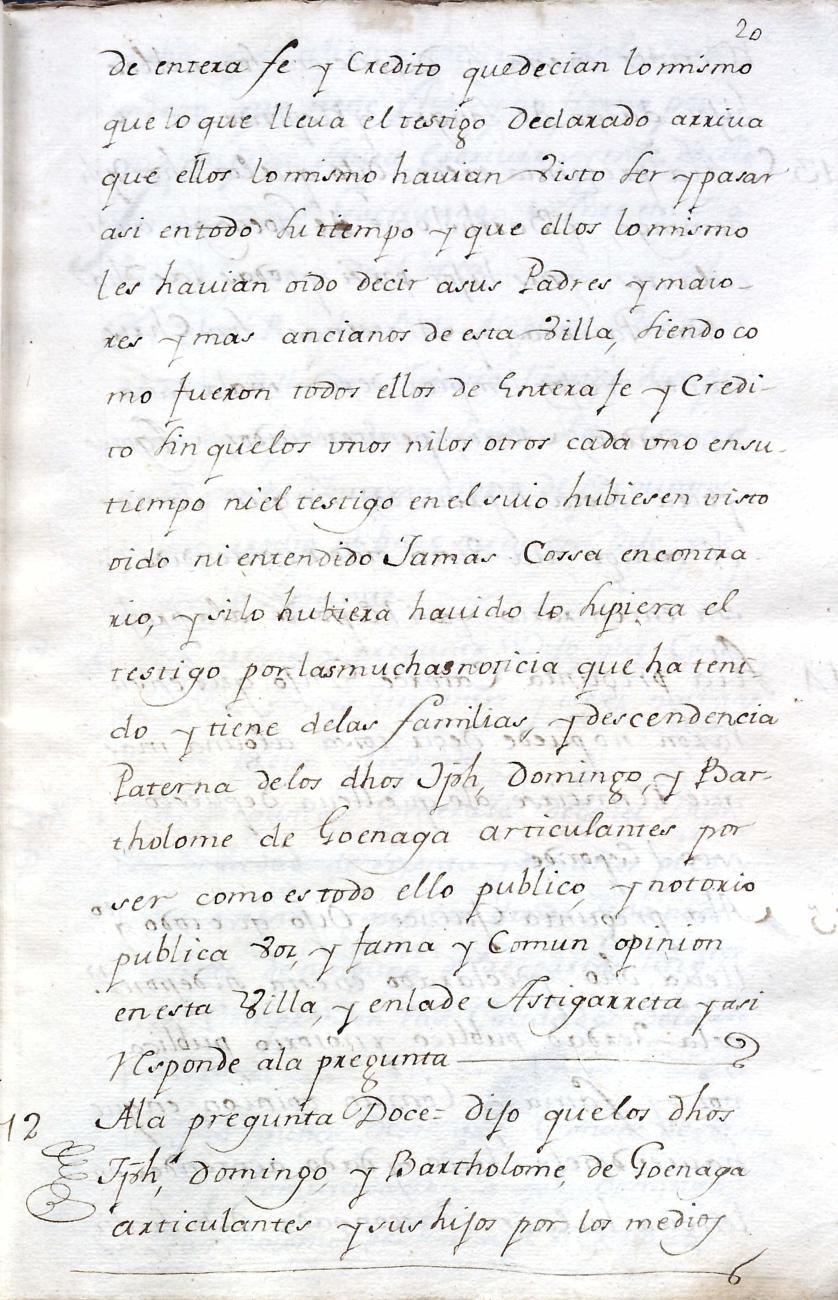 20
de entera fe y Credito quedecian lo mismo
que lo que lleva el testigo Declarado arriva
que ellos lo mismo havian visto ser y pasar
asi entodo su tiempo y que ellos lo mismo
les havian oido decir a sus Padres y maio-
res y mas ancianos de esta Villa, siendo co
mo fueron todos ellos de Entera fe y Credi-
to sin quelos unos nilos otros cada uno ensu-
tiempo ni el testigo en el suio hubiesen visto
oido ni entendido Jamas Cossa encontra
rio, y silo hubiera havido lo supiera el
testigo por lasmuchas noticia que ha teni-
do y tiene delas familias, y descendencia
Paterna delos dhos Jph, Domingo, y Bar-
tholome de Goenaga articulantes por
ser como es todo ello publico, y notorio
publica voz, y fama y Comun opinion
en esta Villa, y enlade Astigarreta y asi
responde ala pregunta
12 Ala pregunta Doce= dijo quelos dhos
Jph, Domingo, y Bartholome, de Goenaga
articulantes y sus hijos por los medios